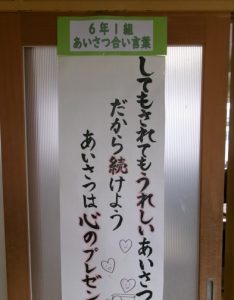 6年1組
あいさつ合い言葉
してもされてもうれしいあいさつ
だから続けよう
あいさつは心のプレゼン